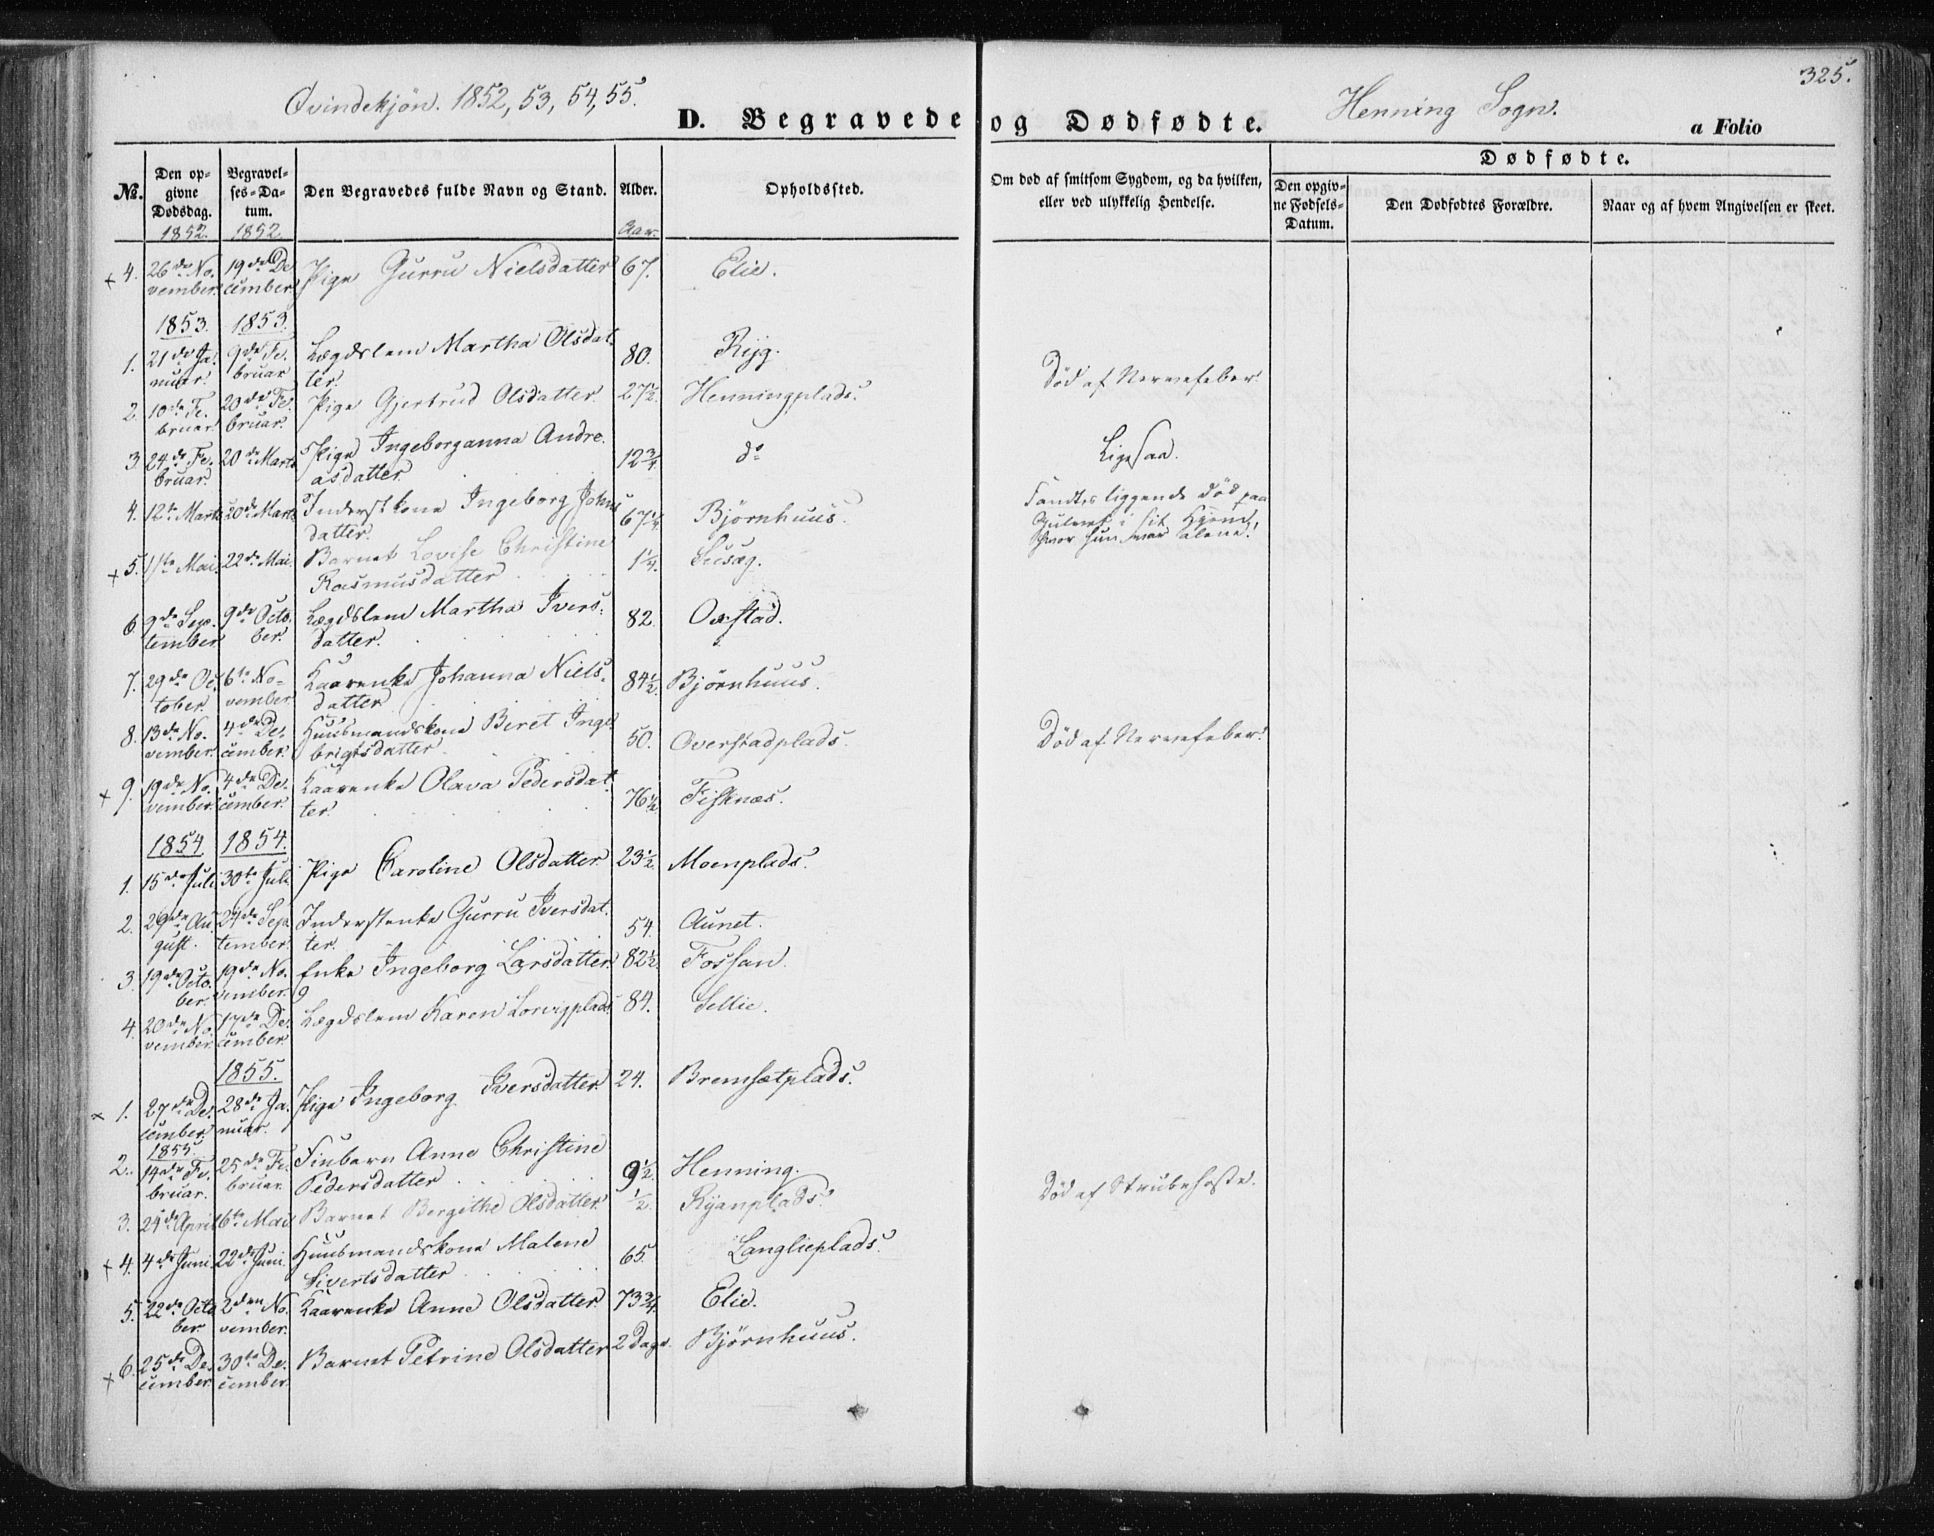 325.
Qvindekjøn. 1852, 53, 54, 55.
Henning Sogn.
D. Begravede og Dødfødte.
a Folio
Dødfødte.
No. Den opgivne Dødsdag. Begravelses-Datum. Den Begravedes fulde Navn og Stand. Alder. Opholdssted. Om død af smitsom Sygdom, og da hvilken, eller ved ulykkelig Hendelse. Den opgivne Fødsels-Datum. Den Dødfødtes Forældre. Naar og af hvem Angivelsen er skeet.
1852. 1852 Aar.
+ 4. 26de November. 19de December. Pige Gurru Nielsdatter 67. Elie.
1853. 1853.
1. 21de Januar. 9de Februar Lægdslem Martha Olsdatter. 80. Ryg.
2. 10de Februar. 20de Februar. Pige Gjertrud Olsdatter. 27½. Henningplads. Død af Nervefeber.
3. 24de Februar. 20de Marts Pige Ingeborganna Andreasdatter. 12¾. do Ligesaa.
4. 12te Marts 20de Marts Inderstkone Ingeborg Johnsdatter. 67¼. Bjørnhuus. Fandtes liggende død paa Gulvet i sit Hjem, hvor hun var alene.
+ 5. 11te Mai. 22de Mai. Barnet Lovise Christine Rasmusdatter 1¼.
6. 9de September 9de October. Lægdslem Martha Iversdatter. 82.
7. 29de October. 6te November. Kaarenke Johanna Nielsdatter 84½. Bjørnhuus.
8. 13de November. 4de December. Huusmandskone Beret Ingebrigtsdatter 50. Overstadplads. Død af Nervefeber.
+ 9. 19de November. 4de December. Kaarenke Olava Pedersdatter. 76½ Fisknæs.
1854. 1854.
1. 15de Juli 30te Juli Pige Caroline Olsdatter 23½. Moenplads.
2. 29de August. 24de September. Inderstenke Gurru Iversdatter. 54. Aunet.
3. 19de October. 19de November. Enke Ingeborg Larsdatter. 82½. Fossan.
4. 20de November. 17de December. Lægdslem Karen Lorvigplads 84. Sellie.
1855.
× 1. 27de December. 28de Januar. Pige Ingeborg Iversdatter. 24. Bremsætplads.
1855.
2. 14de Februar. 25de Februar. Tinbarn Anne Christine Pedersdatter 9½. Henning. Død af Strubehoste.
3. 24de April 6te Mai Barnet Bergithe Olsdatter. ½. Ryanplads.
+ 4. 4de Juni. 22de Juni. Huusmandskone Malene Sivertsdatter 65. Langlieplads.
5. 22de October. 2den November. Kaarenke Anne Olsdatter. 73¾. Elie.
+ 6. 25de December. 30te December. Barnet Petrine Olsdatter 2 Dage. Bjørnhuus.